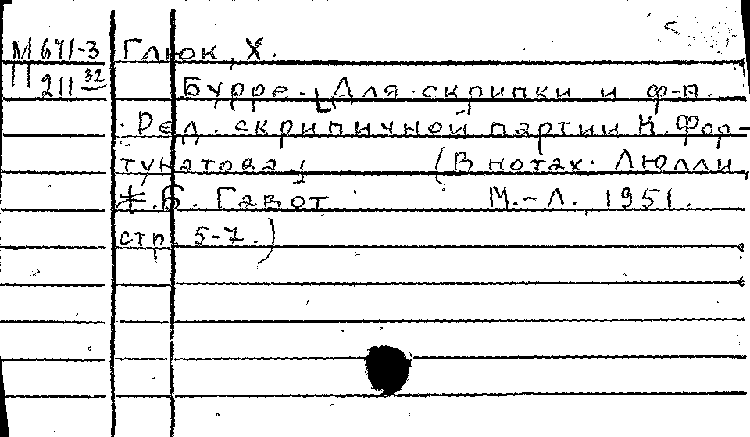 М 671-3 Глюк, Х.
П 211 32 Бурре. [Для скрипки и ф-п.
Ред. скрипичной партии К. Фор-
тунатова] (В нотах: Люлли,
Ж.Б. Гавот М.-Л. 1951.
стр. 5-7.)